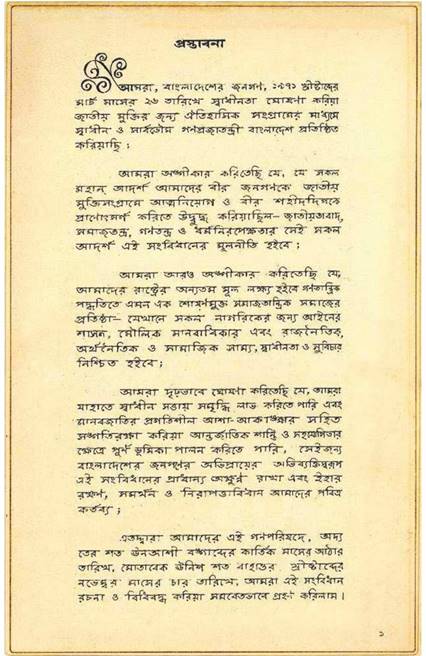 প্রস্তাবনা
আমরা, বাংলাদেশের জনগণ, ১৯৭১ খ্রীষ্টাব্দের
মার্চ মাসের ২৬ তারিখে স্বাধীনতা ঘোষণা করিয়া
জাতীয় মুক্তির জন্য ঐতিহাসিক সংগ্রামের মাধ্যমে
স্বাধীন ও সার্বভৌম গণপ্রজাতন্ত্রী বাংলাদেশ প্রতিষ্ঠিত
করিয়াছি ;
আমরা অঙ্গীকার করিতেছি যে, যে সকল
মহান্ আদর্শ আমাদের বীর জনগণকে জাতীয়
মুক্তিসংগ্রামে আত্মনিয়োগ ও বীর শহীদদিগকে
প্রাণোৎসর্গ করিতে উদ্বুদ্ধ করিয়াছিল– জাতীয়তাবাদ,
সমাজতন্ত্র, গণতন্ত্র ও ধর্মনিরপেক্ষতার সেই সকল
আদর্শ এই সংবিধানের মূলনীতি হইবে ;
আমরা আরও অঙ্গীকার করিতেছি যে,
আমাদের রাষ্ট্রের অন্যতম মূল লক্ষ্য হইবে গণতান্ত্রিক
পদ্ধতিতে এমন এক শোষণমুক্ত সমাজতান্ত্রিক সমাজের
প্রতিষ্ঠা– যেখানে সকল নাগরিকের জন্য আইনের
শাসন, মৌলিক মানবাধিকার এবং রাজনৈতিক,
অর্থনৈতিক ও সামাজিক সাম্য, স্বাধীনতা ও সুবিচার
নিশ্চিত হইবে;
আমরা দৃঢ়ভাবে ঘোষণা করিতেছি যে, আমরা
যাহাতে স্বাধীন সত্তায় সমৃদ্ধি লাভ করিতে পারি এবং
মানবজাতির প্রগতিশীল আশা-আকাঙ্ক্ষার সহিত
সঙ্গতিরক্ষা করিয়া আন্তর্জাতিক শান্তি ও সহযোগিতার
ক্ষেত্রে পূর্ণ ভূমিকা পালন করিতে পারি, সেইজন্য
বাংলাদেশের জনগণের অভিপ্রায়ের অভিব্যক্তিস্বরূপ
এই সংবিধানের প্রাধান্য অক্ষুণ্ণ রাখা এবং ইহার
রক্ষণ, সমর্থন ও নিরাপত্তাবিধান আমাদের পবিত্র
কর্তব্য ;
এতদ্দ্বারা আমাদের এই গণপরিষদে, অদ্য
তের শত ঊনআশী বঙ্গাব্দের কার্তিক মাসের আঠার
তারিখ, মোতাবেক ঊনিশ শত বাহাত্তর খ্রীষ্টাব্দের
নভেম্বর মাসের চার তারিখে, আমরা এই সংবিধান
রচনা ও বিধিবদ্ধ করিয়া সমবেতভাবে গ্রহণ করিলাম ।
১